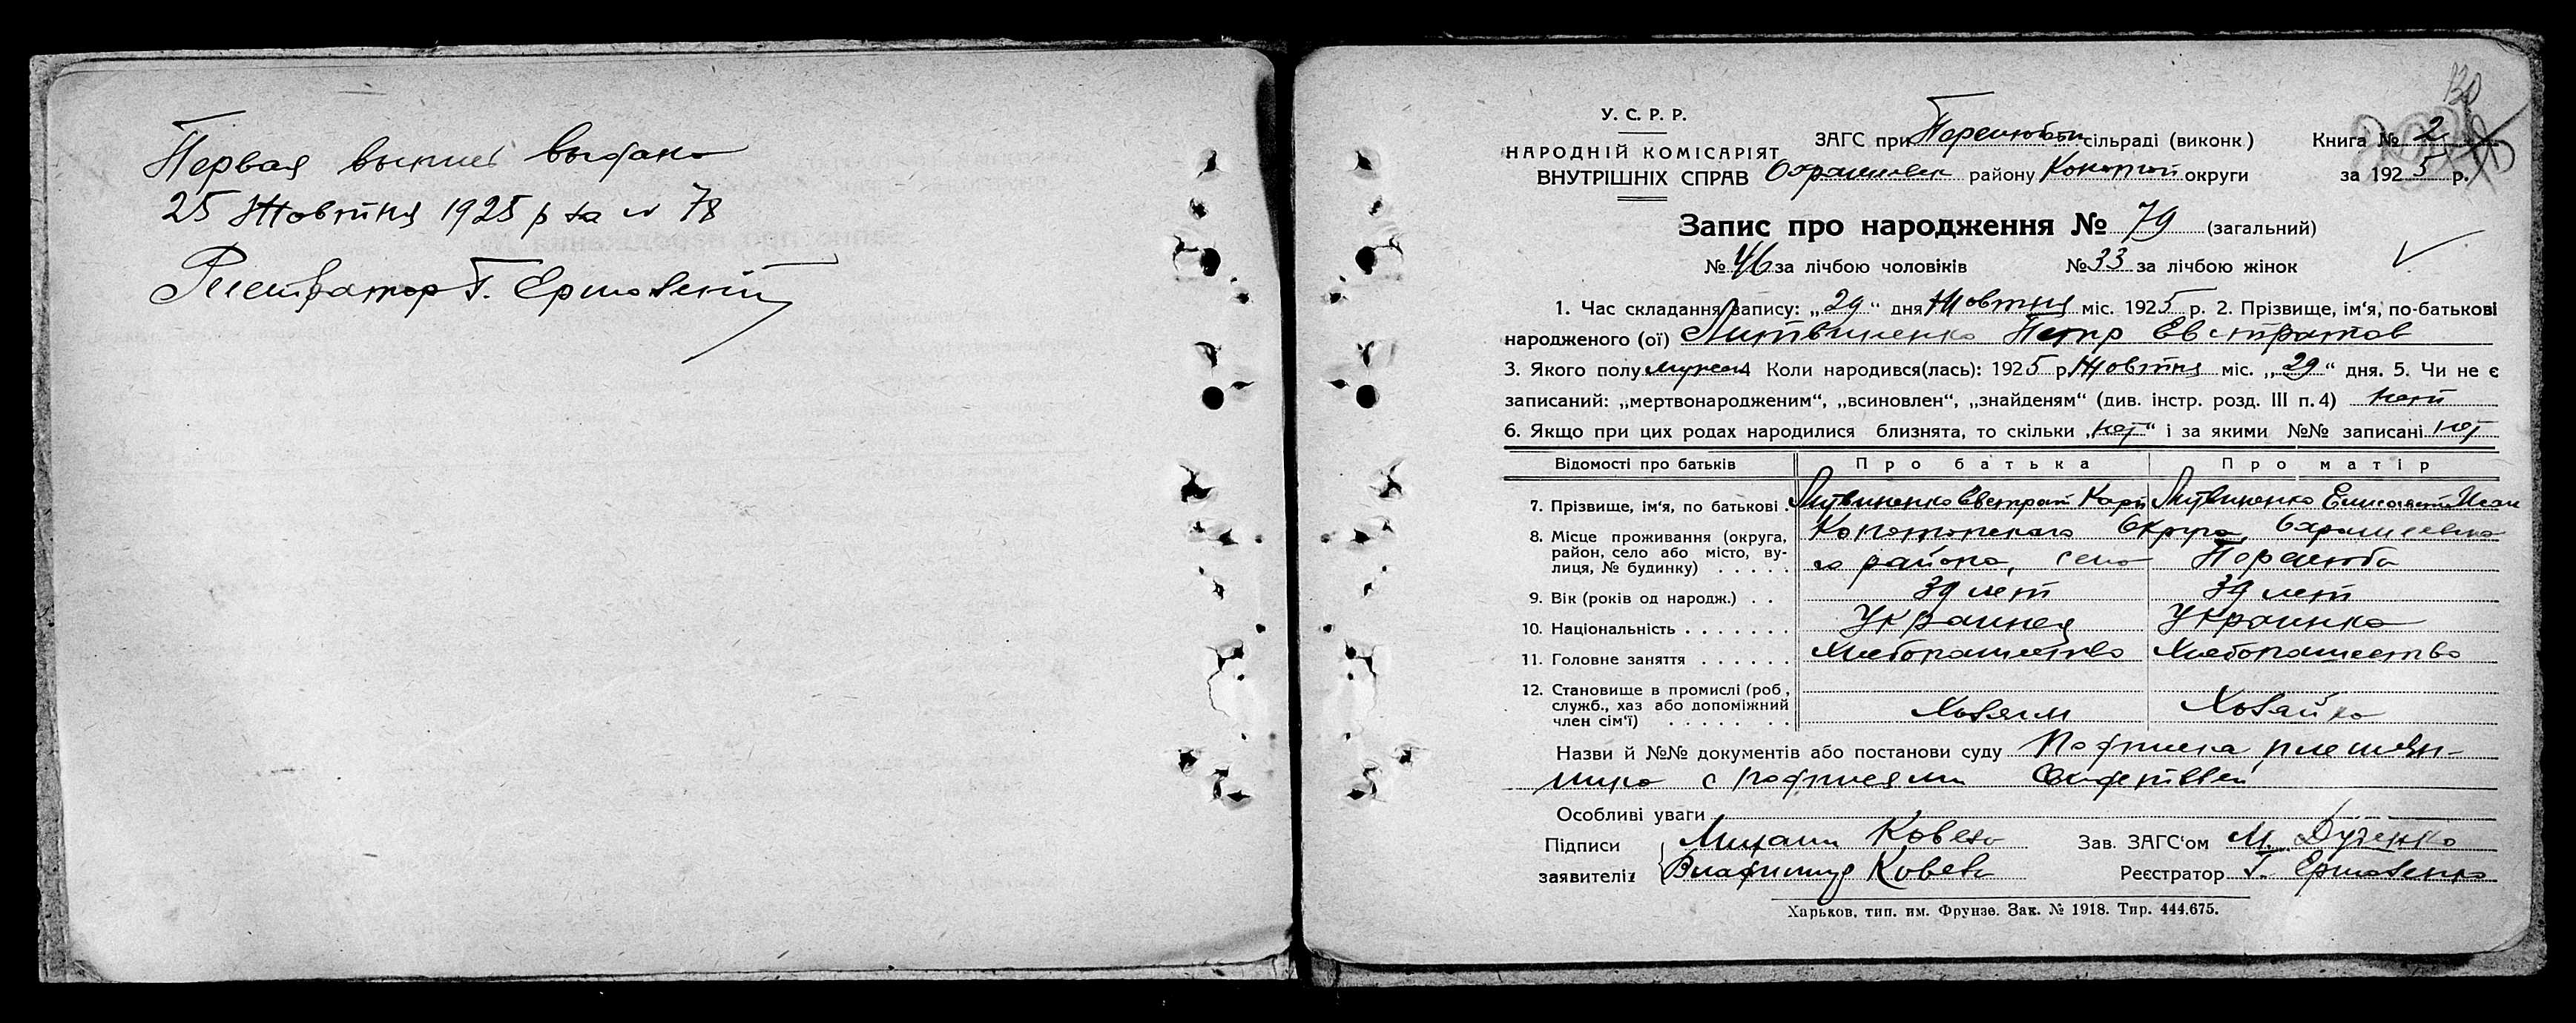 Первая выпись выдана
25 Жовтня 1925 р за № 78
Регистратор Г.
130
У. С. Р. Р.
НАРОДНІЙ КОМІСАРІЯТ
ВНУТРІШНІХ СПРАВ
ЗАГС при Перелюбськ сільраді (виконк)
районі Конотоп округи
Книга № 2
за 1925 р.
Запис про народження № 79 (загальний)
№ 46 за лічбою чоловіків № 33 за лічбою жінок
1. Час складання запису: „29“ дня Жовтня міс. 1925 р. 2. Прізвище, ім‘я, по-батькові
народженого (ої) Литвиненко Петр Евстратов
3. Якого полу мужск 4 Коли народився(лась): 1925 р Жовтня міс. „29“ дня. 5. Чи не є
записаний: „мертвонародженим“, „всиновлен“, „знайденям“ (див. інстр. розд. III п. 4) нет
6. Якщо при цих родах народилися близнята, то скільки „нет“ і за якими №№ записані нет
Відомості про батьків Про батька Про матір
7. Прізвище, ім‘я, по батькові . Литвиненко Евстрат Карп Литвиненко Елисавета Иван
8. Місце проживання (округа, район, село або місто, вулиця, № будинку) . . . . . Конотопского Округа,
го района, село Перелюба
9. Вік (років од народж.) . . 39 лет 39 лет
10. Національність . . . . . . . Украинец Украинка
11. Головне заняття . . . . . . Хлебопашество Хлебопашество
12. Становище в промислі (роб, служб., хаз або допоміжний член сім‘ї) . . . . . . . Хозяин Хозяйка
Назви й №№ документів або постанови суду Подписка
с подписями
Особливі уваги
Підписи Михаил Ковель Зав. ЗАГС‘ом М.
заявителів Владимир Ковель Реєстратор Г.
Харьков, тип. им. Фрунзе. Зак. № 1918. Тир. 444.675.